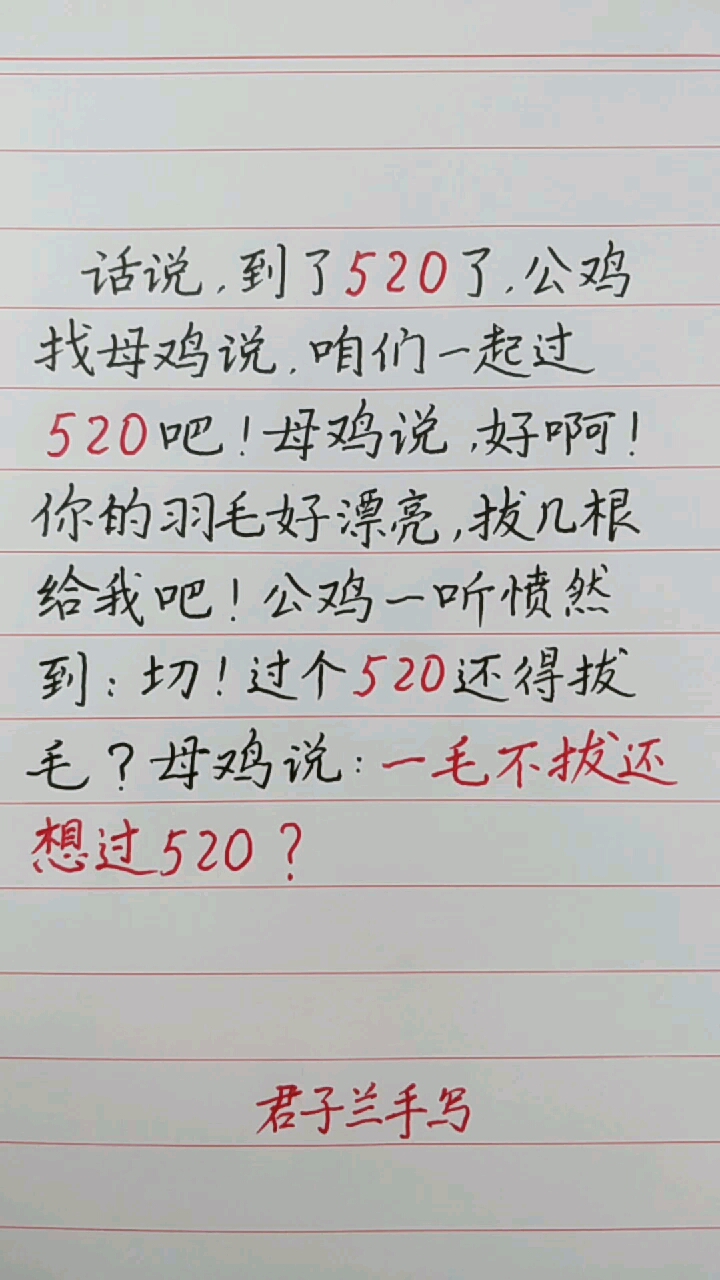 话说,到了520了,公鸡
找母鸡说,咱们一起过
520吧!母鸡说,好啊!
你的羽毛好漂亮,拔几根
给我吧!公鸡一听愤然
到:切!过个520还得拔
毛?母鸡说:一毛不拔还
想过520?
君子兰手写